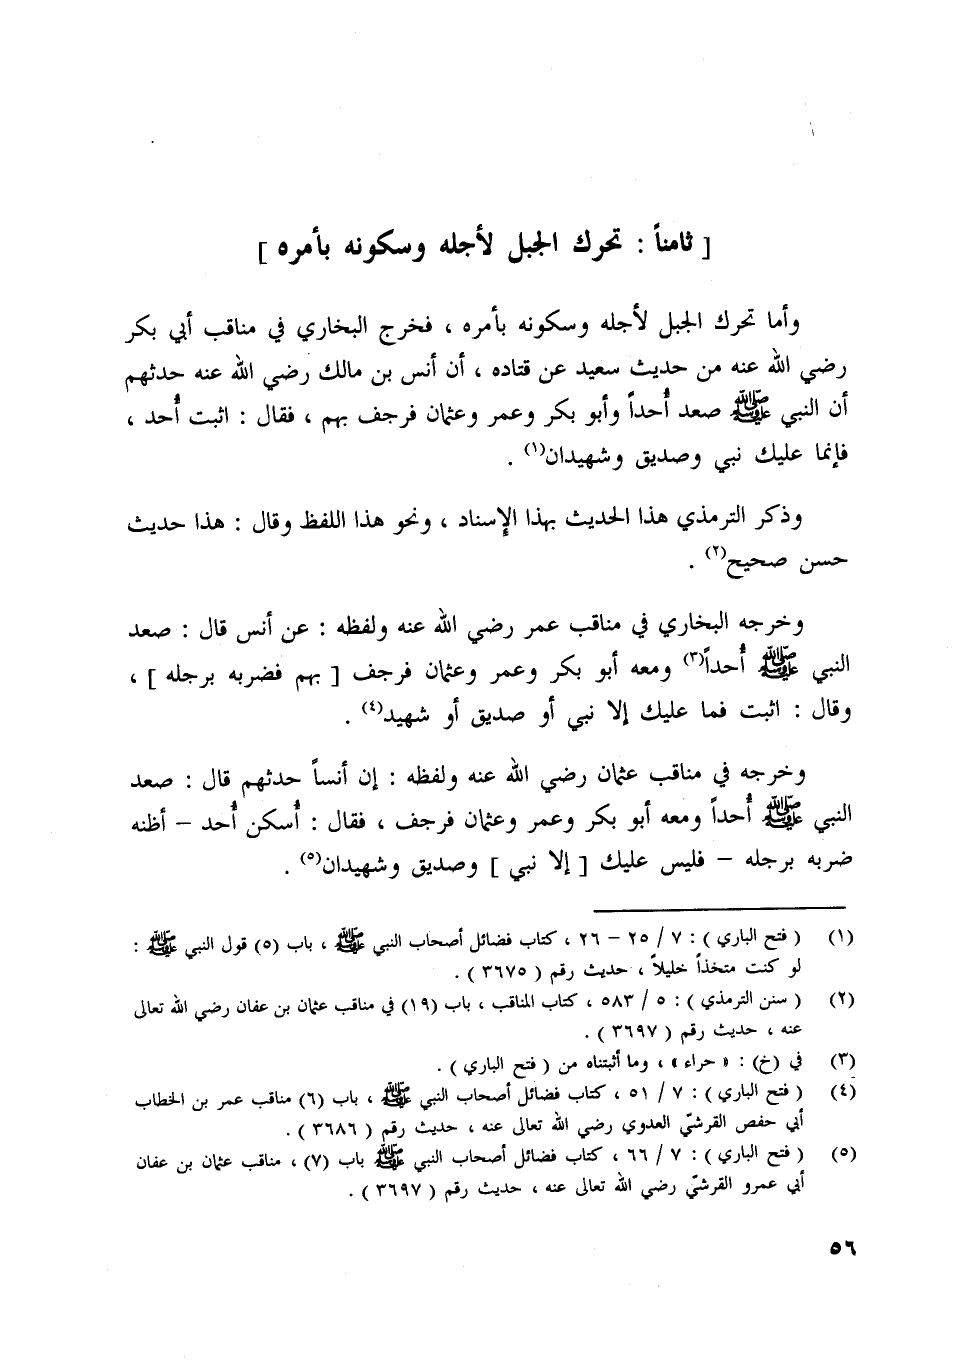 [ ثامناً : تحرك الجبل لأجله وسكونه بأمره ]
وأما تحرك الجبل لأجله وسكونه بأمره ، فخرج البخاري في مناقب أبي بكر
رضي الله عنه من حديث سعيد عن قتاده ، أن أنس بن مالك رضي الله عنه حدثهم
أن النبي ﷺ صعد أُحداً وأبو بكر وعمر وعثمان فرجف بهم ، فقال : اثبت أُحد ،
فإنما عليك نبي وصديق وشهيدان(١) .
وذكر الترمذي هذا الحديث بهذا الإسناد ، ونحو هذا اللفظ وقال : هذا حديث
حسن صحيح(٢) .
وخرجه البخاري في مناقب عمر رضي الله عنه ولفظه : عن أنس قال : صعد
النبي ﷺ أُحداً(٣) ومعه أبو بكر وعمر وعثمان فرجف [ بهم فضربه برجله ] ،
وقال : اثبت فما عليك إلا نبي أو صديق أو شهيد(٤) .
وخرجه في مناقب عثمان رضي الله عنه ولفظه : إن أنساً حدثهم قال : صعد
النبي ﷺ أُحداً ومعه أبو بكر وعمر وعثمان فرجف ، فقال : أُسكن أُحد – أظنه
ضربه برجله – فليس عليك [ إلا نبي ] وصديق وشهيدان(٥) .
(١) ( فتح الباري ) : ٧ / ٢٥ – ٢٦ ، كتاب فضائل أصحاب النبي ﷺ ، باب (٥) قول النبي ﷺ :
لو كنت متخذاً خليلاً ، حديث رقم ( ٣٦٧٥ ) .
(٢) ( سنن الترمذي ) : ٥ / ٥٨٣ ، كتاب المناقب ، باب (١٩) في مناقب عثمان بن عفان رضي الله تعالى
عنه ، حديث رقم ( ٣٦٩٧ ) .
(٣) في (خ) : « حراء » ، وما أثبتناه من ( فتح الباري ) .
(٤) ( فتح الباري ) : ٧ / ٥١ ، كتاب فضائل أصحاب النبي ﷺ ، باب (٦) مناقب عمر بن الخطاب
أبي حفص القرشيّ العدوي رضي الله تعالى عنه ، حديث رقم ( ٣٦٨٦ ) .
(٥) ( فتح الباري ) : ٧ / ٦٦ ، كتاب فضائل أصحاب النبي ﷺ باب (٧) ، مناقب عثمان بن عفان
أبي عمرو القرشيّ رضي الله تعالى عنه ، حديث رقم ( ٣٦٩٧ ) .
٥٦